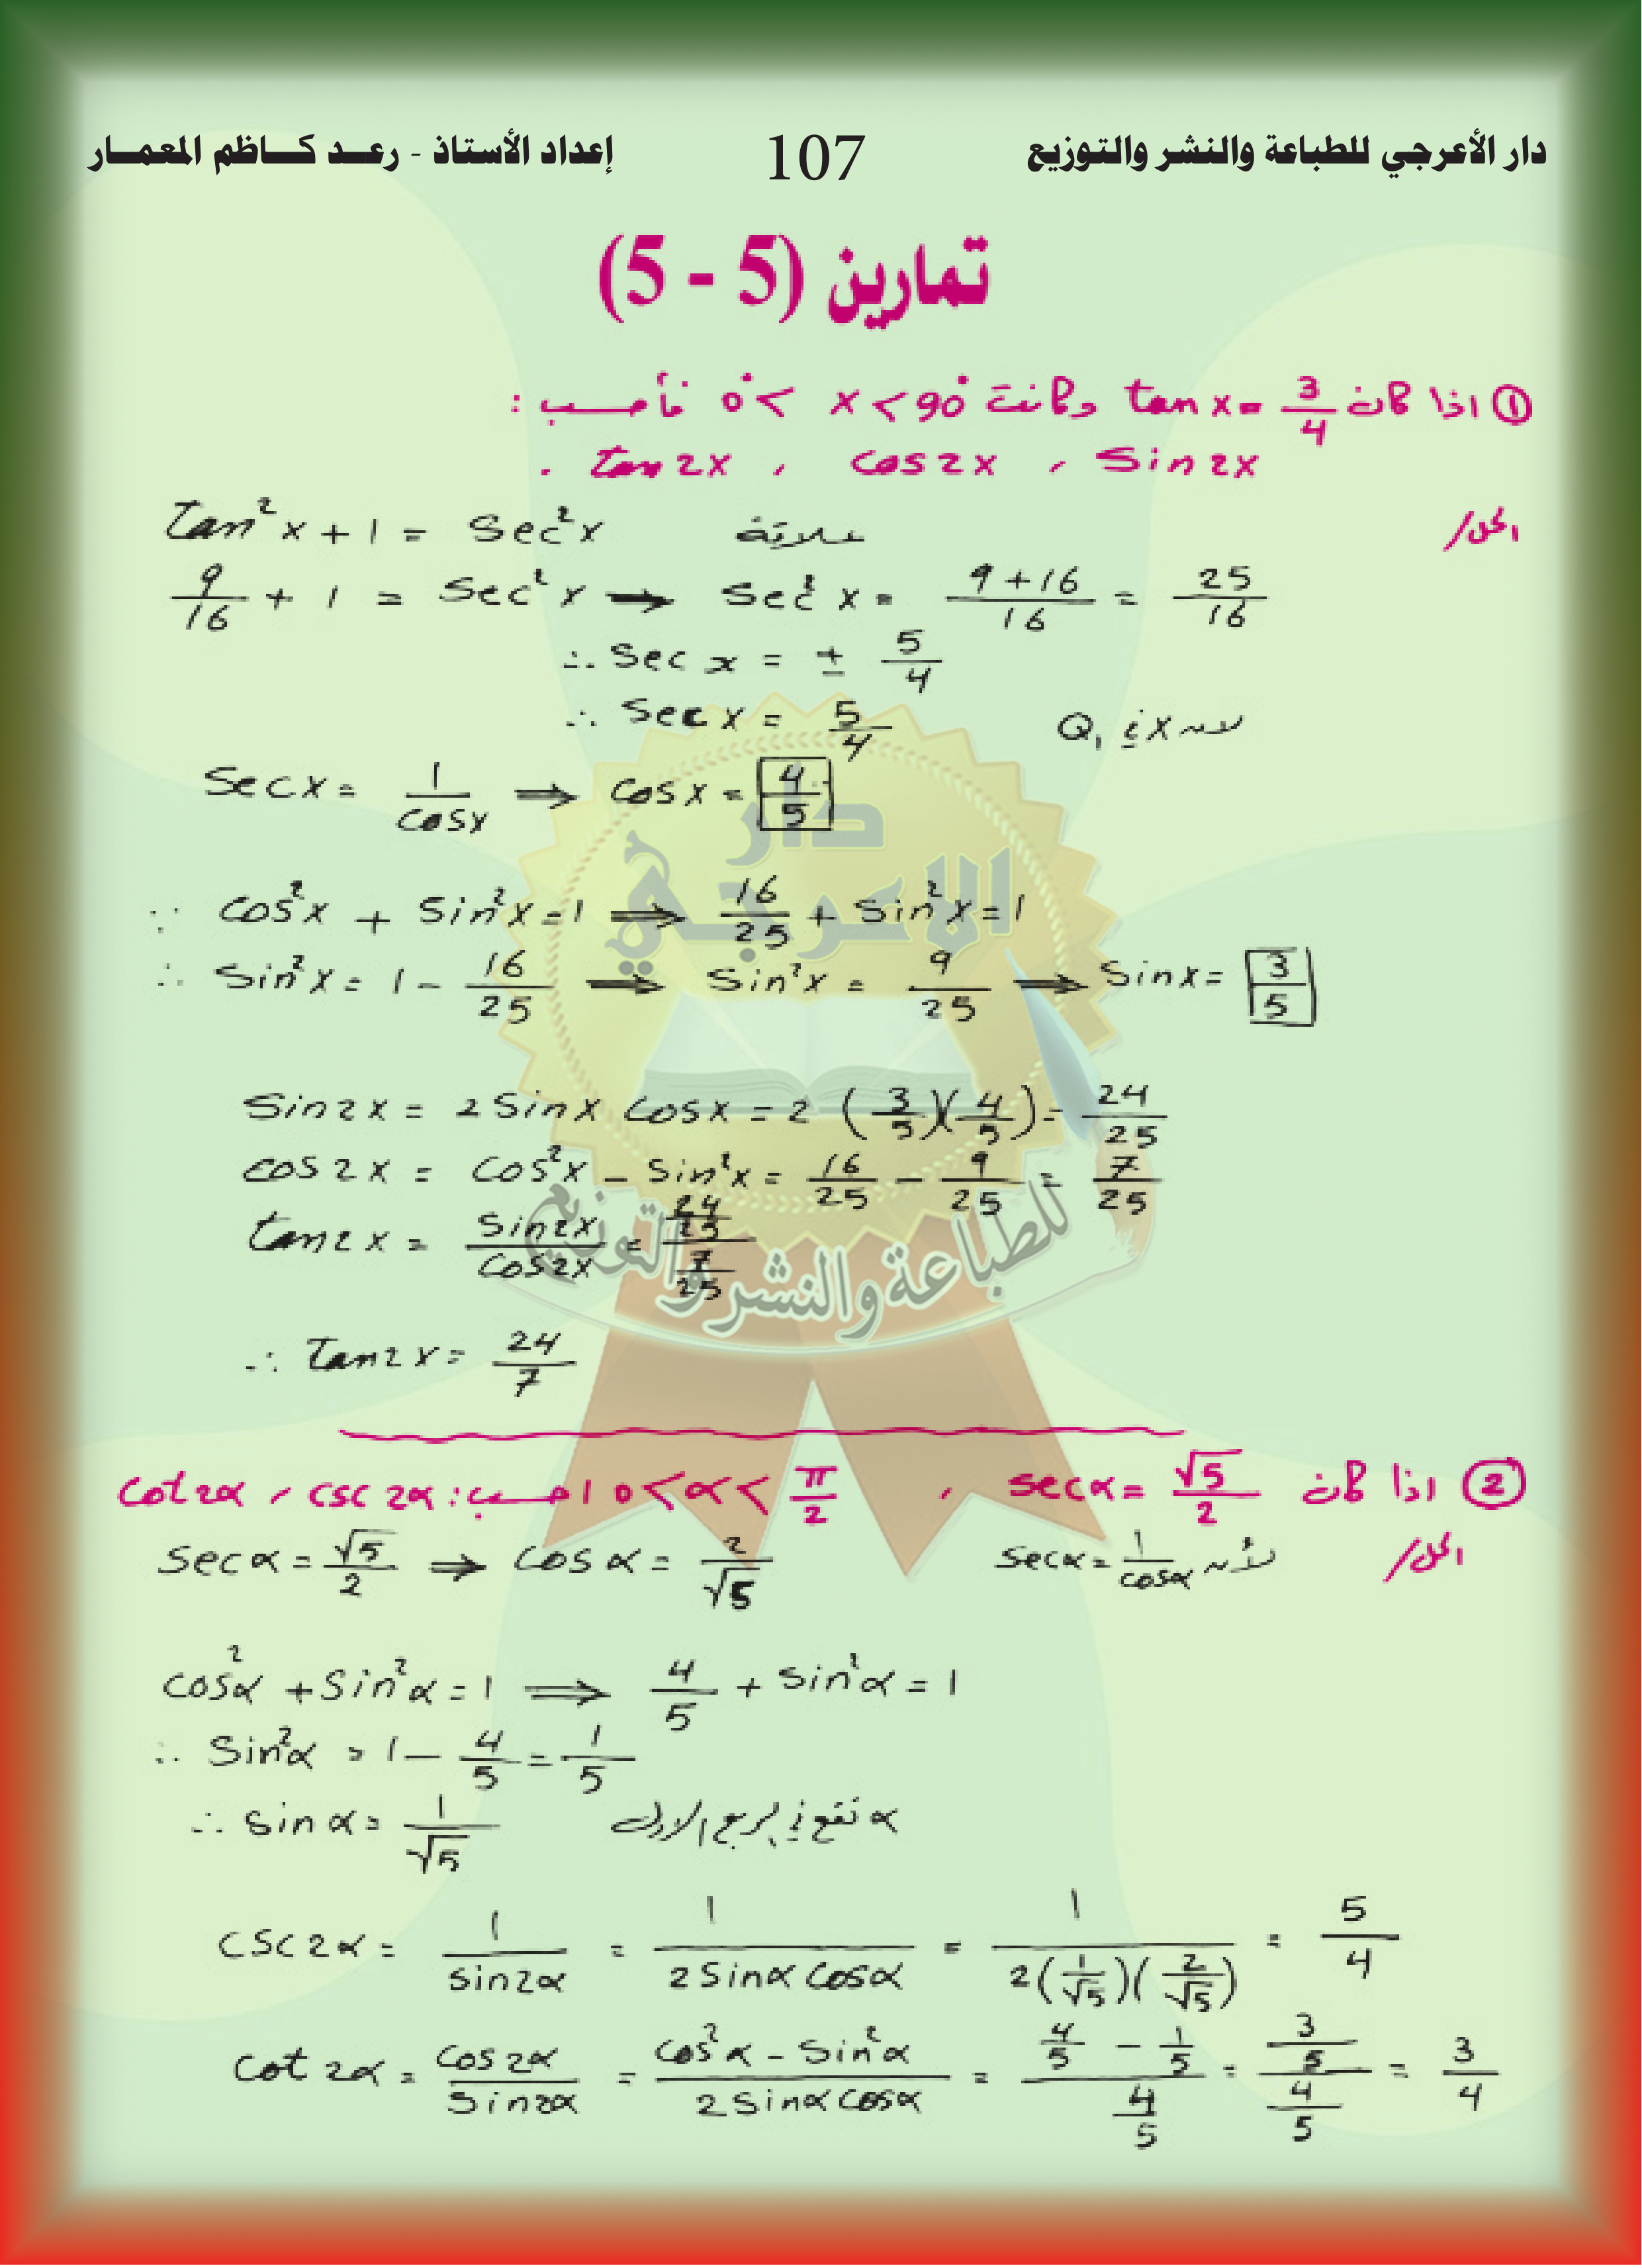 دار الأعرجي للطباعة والنشر والتوزيع 107 إعداد الأستاذ - رعـــد كـــاظم المعمـــار
تمارين (5 - 5)
① اذا كان tan x = 3/4 وكانت 0° < x < 90° فأحسب :
sin2x ، cos2x ، tan2x .
الحل/
tan²x + 1 = sec²x علاقة
9/16 + 1 = sec²x → sec²x = (9+16)/16 = 25/16
∴ sec x = ± 5/4
∴ sec x = 5/4 لان x في Q₁
sec x = 1/cosx ⇒ cosx = 4/5
∵ cos²x + sin²x = 1 ⇒ 16/25 + sin²x = 1
∴ sin²x = 1 - 16/25 ⇒ sin²x = 9/25 ⇒ sinx = 3/5
sin2x = 2 sinx cosx = 2 (3/5)(4/5) = 24/25
cos2x = cos²x - sin²x = 16/25 - 9/25 = 7/25
tan2x = sin2x/cos2x = (24/25)/(7/25)
∴ tan2x = 24/7
② اذا كان secα = √5/2 ، 0 < α < π/2 احسب : csc2α ، cot2α
الحل/ لأن secα = 1/cosα
secα = √5/2 ⇒ cosα = 2/√5
cos²α + sin²α = 1 ⇒ 4/5 + sin²α = 1
∴ sin²α = 1 - 4/5 = 1/5
∴ sinα = 1/√5 α تقع في الربع الاول
csc2α = 1/sin2α = 1/(2sinα cosα) = 1/(2(1/√5)(2/√5)) = 5/4
cot2α = cos2α/sin2α = (cos²α - sin²α)/(2sinα cosα) = (4/5 - 1/5)/(4/5) = (3/5)/(4/5) = 3/4
دار
الاعرجي
للطباعة والنشر والتوزيع